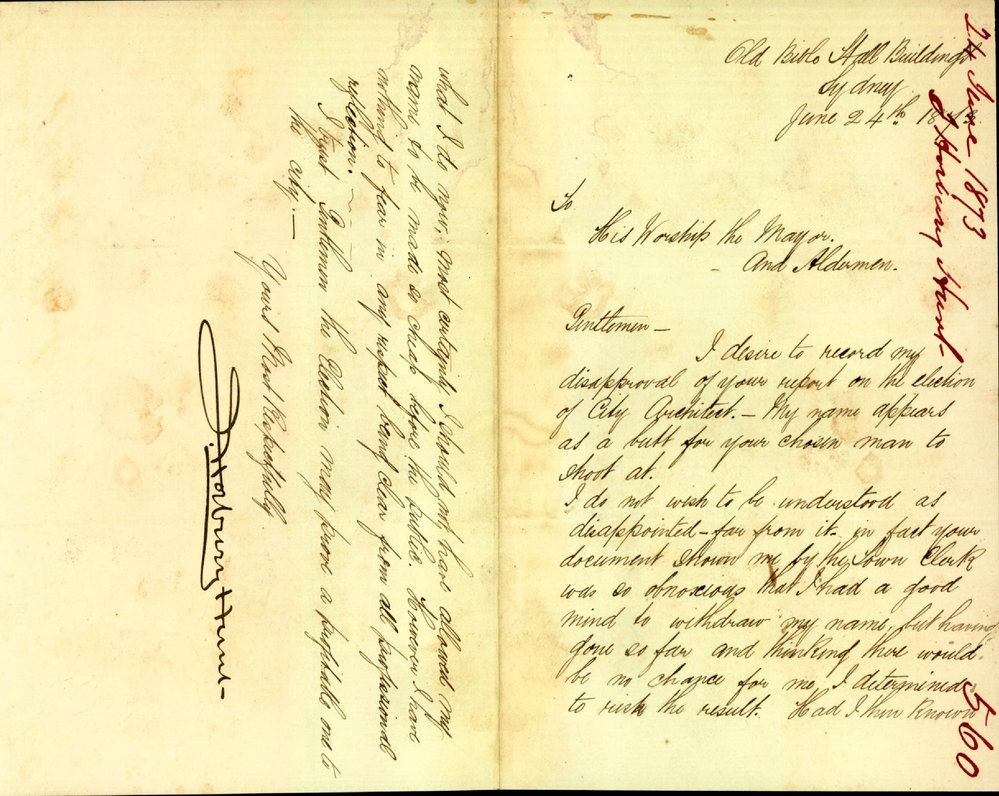 Old Bible Hall Buildings
Sydney
June 24th 1873
To
His Worship the Mayor.
And Aldermen.
Gentlemen —
I desire to record my
disapproval of your report on the election
of City Architect. — My name appears
as a butt for your chosen man to
shoot at.
I do not wish to be understood as
disappointed — far from it. in fact your
document shown me by the Town Clerk
was so obnoxious that I had a good
mind to withdraw my name, but having
gone so far and thinking there would
be no chance for me, I determined
to risk the result. Had I then known
what I do now, most certainly I should not have allowed my
name to be made so cheap before the public. However I have
nothing to fear in any respect being clear from all professional
reflection. —
I trust Gentlemen the Election may prove a profitable one to
the City. —
Yours Most Respectfully
J. Horbury Hunt —
24 June 1873
J Horbury Hunt —
560